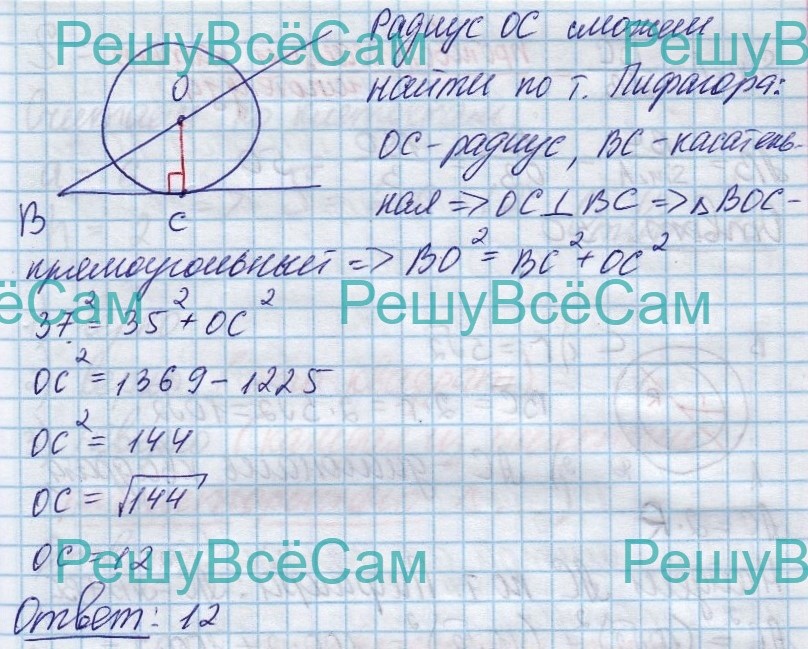 РешуВсёСам РешуВсёСам
Радиус OC сможем
найти по т. Пифагора:
OC - радиус, BC - касатель-
ная => OC⊥BC => △BOC -
прямоугольный => BO² = BC² + OC²
O
B
C
РешуВсёСам РешуВсёСам
37² = 35² + OC²
OC² = 1369 - 1225
OC² = 144
OC = √144
OC = 12
РешуВсёСам РешуВсёСам
Ответ: 12